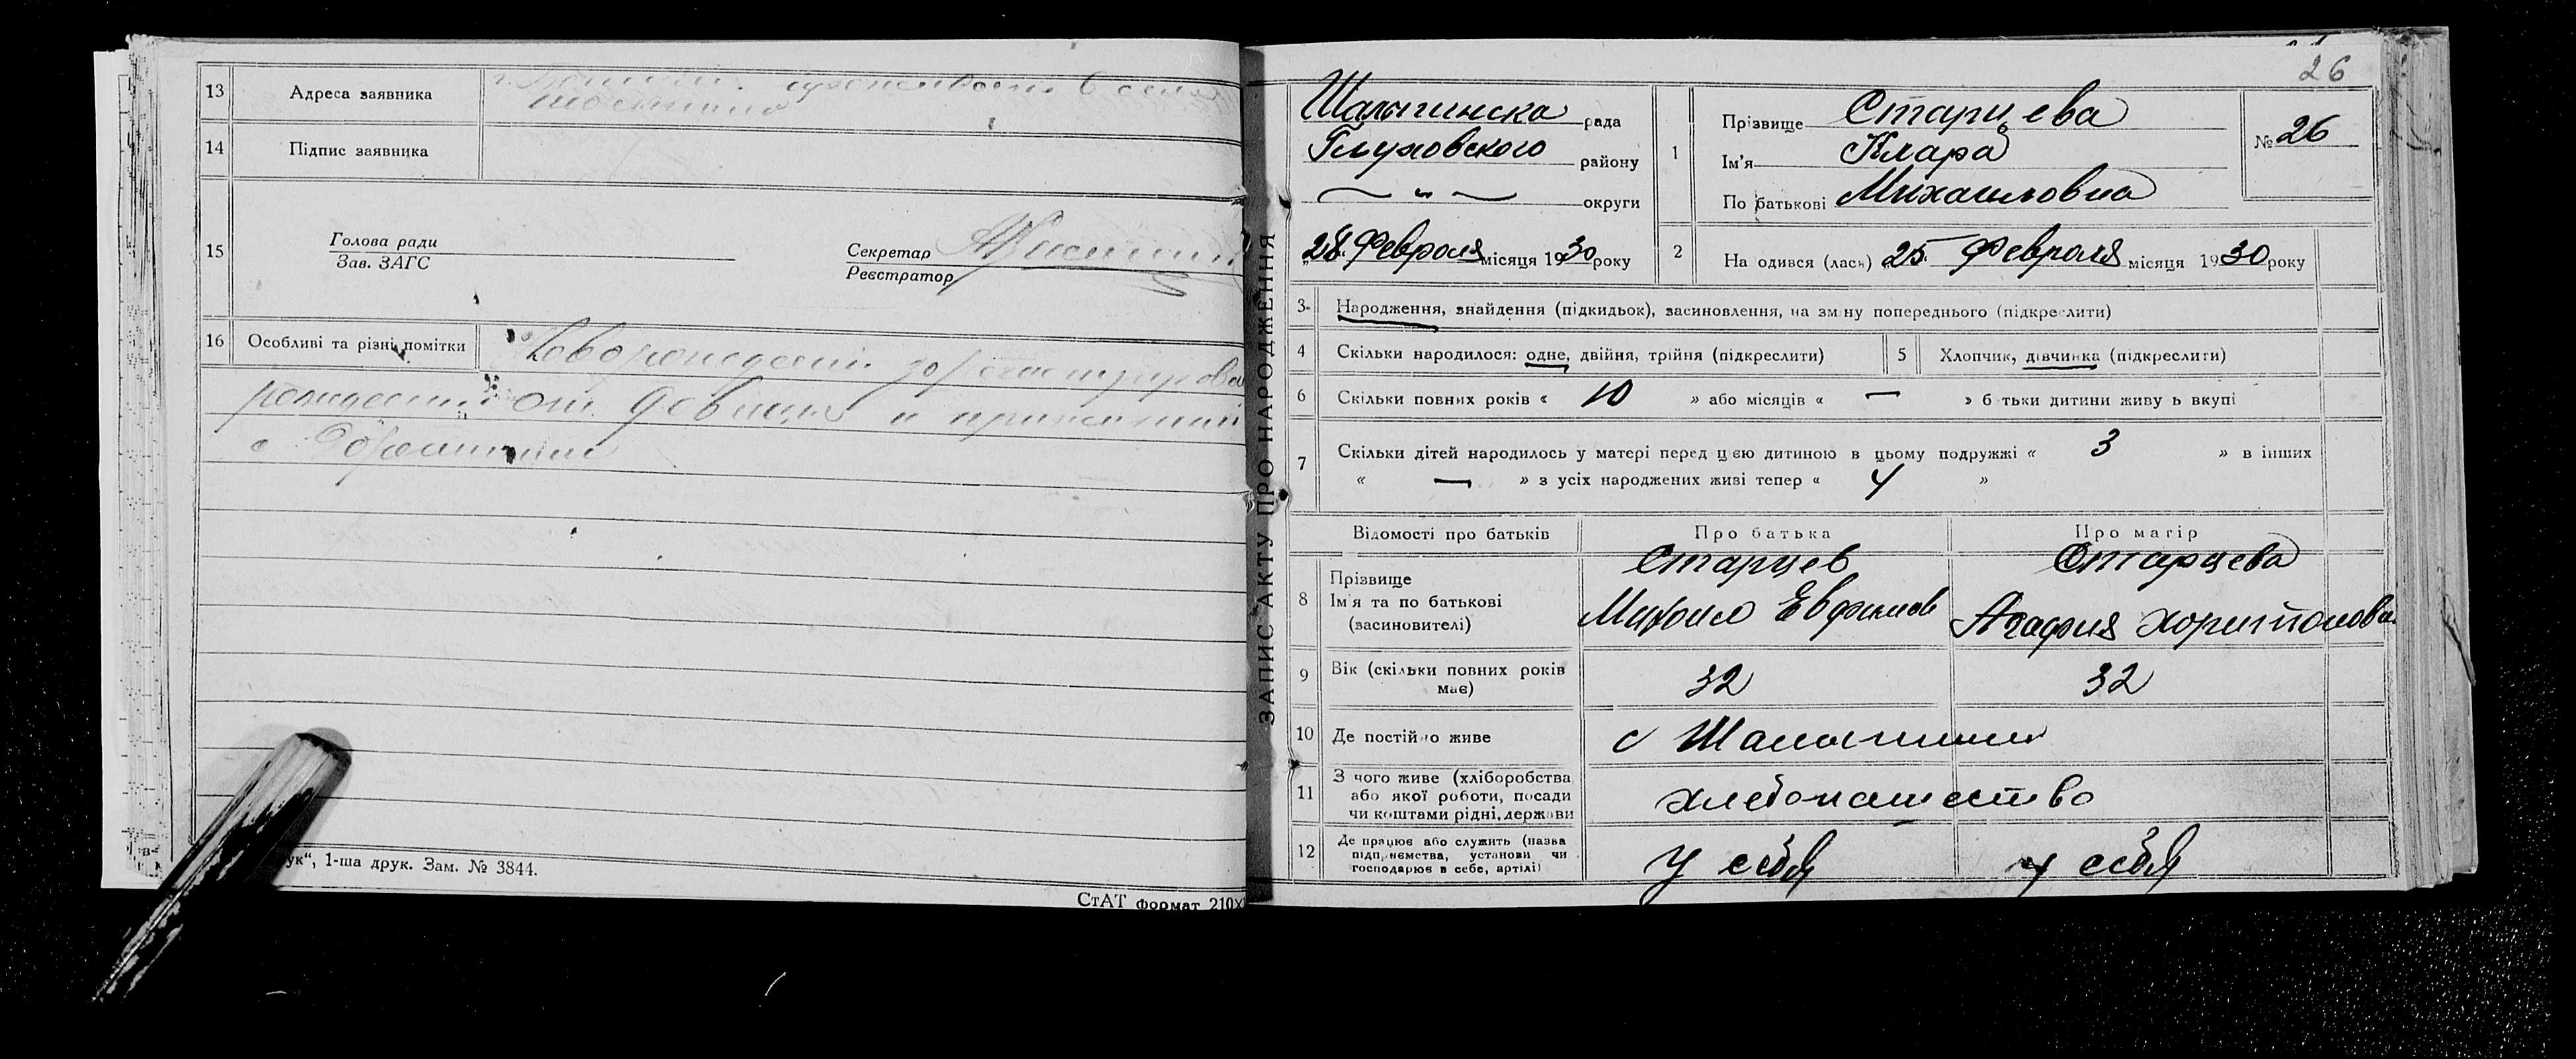 13 Адреса заявника
14 Підпис заявника
15 Голова ради
Зав. ЗАГС
Секретар
Реєстратор
16 Особливі та різні помітки
от девицы и
ук“, 1-ша друк. Зам. № 3844.
СтАТ формат 210х
ЗАПИС АКТУ ПРО НАРОДЖЕННЯ
26
Шалыгинска рада
Глуховского району
— " — округи
„28„ Февраля місяця 1930 року
1 Прізвище Старцева
Ім'я Клара
По батькові Михаиловна
№ 26
2 На одився (лася) „25„ Февраля місяця 1930 року
3 Народження, знайдення (підкидьок), засиновлення, на зм ну попереднього (підкреслити)
4 Скільки народилося: одне, двійня, трійня (підкреслити)
5 Хлопчик, дівчинка (підкреслити)
6 Скільки повних років « 10 » або місяців « — » б тьки дитини живу ь вкупі
7 Скільки дітей народилось у матері перед цією дитиною в цьому подружжі « 3 » в інших
« — » з усіх народжених живі тепер « 4 »
Відомості про батьків Про батька Про матір
8 Прізвище
Ім'я та по батькові
(засиновителі)
Старцев
Михаил Евфимов
Старцева
Агафия Харитонова
9 Вік (скільки повних років має) 32 32
10 Де постійно живе с Шалыгино
11 З чого живе (хліборобства
або якої роботи, посади
чи коштами рідні, держави
хлебопашество
12 Де працює або служить (назва
підприємства, установи чи
господарює в себе, артілі)
у себя у себя